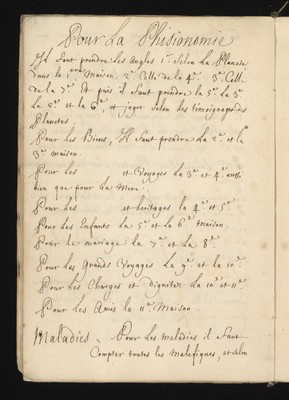 Pour La Phisionomie
Il faut prendre les Angles 1.º Selon la Planete
dans la 1.ere maison. 2.º Celle de la 4.e 3.º Celle
de la 7.e Et puis il faut prendre la 3.e La 5.e
La 2.e et la 6.e, et juger selon des témoignages des
Planetes.
Pour les Biens, Il faut prendre la 2.e et la
3.e maison.
Pour les et Voyages la 3.e et 4.e aussi
bien que pour la Mere.
Pour les et heritages la 4.e et 5.e
Pour Les Enfants La 5.e et la 6.e Maison.
Pour le mariage la 7.e et la 8.e
Pour les Grands Voyages la 9.e et la 10.e
Pour les Charges et dignités la 10.e et 11.e
Pour les Amis la 11.e Maison.
Maladies. Pour les maladies il faut
Compter toutes les Malefiques, et selon